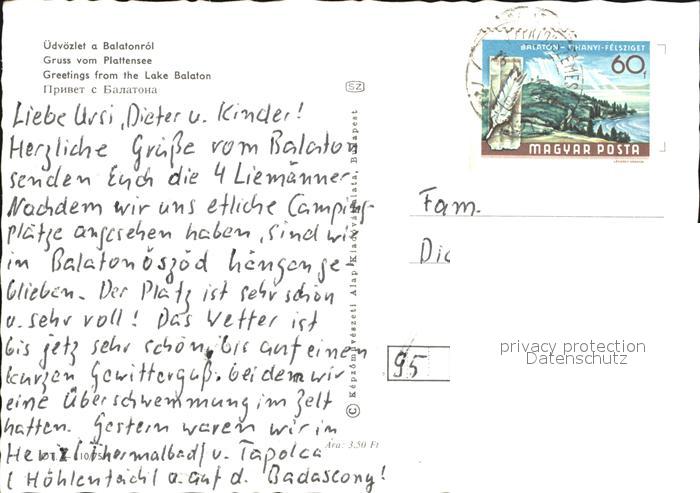 Üdvözlet a Balatonról
Gruss vom Plattensee
Greetings from the Lake Balaton
Привет с Балатона
SZ
BALATON - TIHANYI-FÉLSZIGET
60f
MAGYAR POSTA
Liebe Ursi, Dieter u. Kinder!
Herzliche Grüße vom Balaton
senden Euch die 4 Liemänner
Nachdem wir uns etliche Camping-
plätze angesehen haben, sind wir
in Balatonöszöd hängenge-
blieben. Der Platz ist sehr schön
u. sehr voll! Das Wetter ist
bis jetz sehr schön, bis auf einen
kurzen Gewitterguß, bei dem wir
eine Überschwemmung im Zelt
hatten. Gestern waren wir in
Heviz (Thermalbad) u. Tapolca
(Höhlenteich) u. auf d. Badascony!
© Képzőművészeti Alap Kiadóvállalata, Budapest
Ára: 3,50 Ft
Fam.
Die
95
privacy protection
Datenschutz